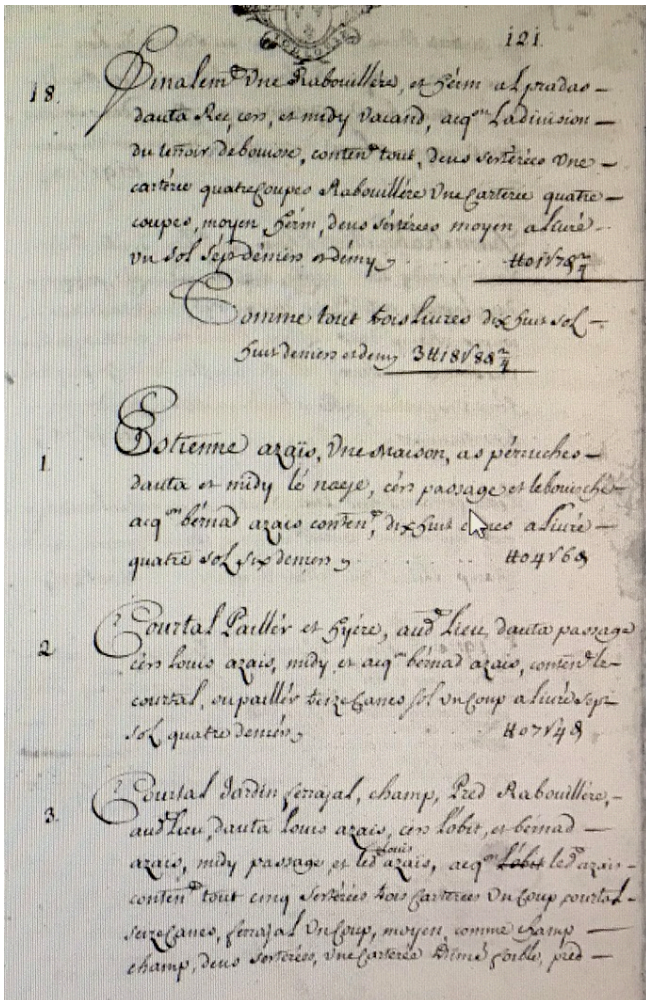 121.
18. Finalem.t Une Rabouillère, et hèrm al pradas
dauta Rec, cers, et midy vacand, acq.on La division
du terroir de bouisse, conten.t tout, deus seterées une
carterie quatre Coupes Rabouillère Une Carterie quatre
coupes, moyen, hèrm, deus séterées moyen, alivré
un sol sépt déniers et démy ₶01√78 2/4
Comme tout trois livres dix huit sol
huit deniers et demy 3₶18√88 2/4
1. Estienne azaïs, Une Maison, as péruches
dauta et midy lé, cers passage et
acq.on bérnad azais conten.t, dix huit alivré
quatre sol six deniers ₶04√68
2. Courtal Paillér et hyére, aud.t Lieu, dauta passage
cérs Louis azais, midy et acq.on bérnad azais, conten.t le
courtal, ou paillér treize Canes sol un Coup alivré sept
sol quatre deniérs ₶07√48
3. Courtal Jardin ferrajal, champ, Pred Rabouillère,
aud.t Lieu, dauta louis azais, cérs Lobit, et bérnad
azais, midy passage, et led.t Louis azais, acq.on Lobit led.t azais
conten.t tout cinq seterées trois Carterées Un Coup courtal
seize Canes, ferrajal Un Coup, moyen, comme champ
champ, deus seterées, Une Carterée foible, pred